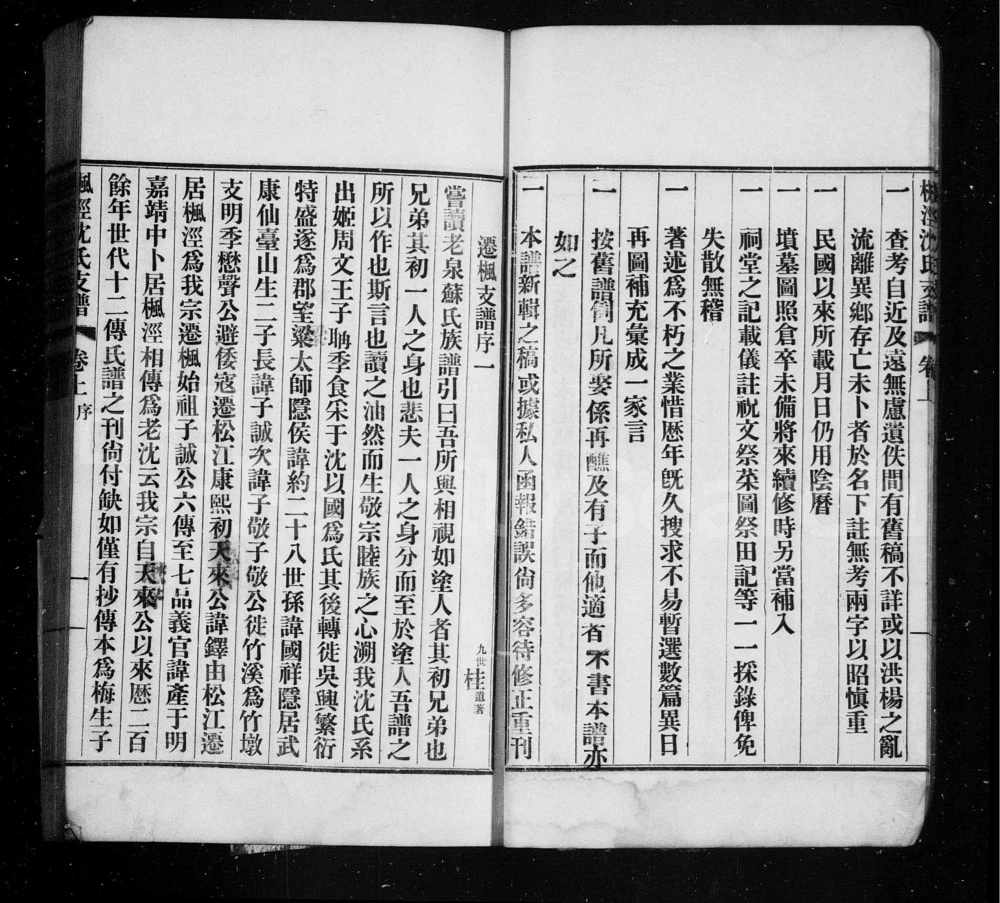 楓涇沈氏支譜 卷上
一 查考自近及遠無慮遺佚間有舊稿不詳或以洪楊之亂
流離異鄉存亡未卜者於名下註無考兩字以昭愼重
一 民國以來所載月日仍用陰曆
一 墳墓圖照倉卒未備將來續修時另當補入
一 祠堂之記載儀註祝文祭菜圖祭田記等一一採錄俾免
失散無稽
一 著述爲不朽之業惜歷年旣久搜求不易暫選數篇異日
再圖補充彙成一家言
一 按舊譜簡凡所娶係再醮及有子而他適者不書本譜亦
如之
一 本譜新輯之稿或據私人函報錯誤尙多容待修正重刊
遷楓支譜序一
九世桂遺著
嘗讀老泉蘇氏族譜引曰吾所與相視如塗人者其初兄弟也
兄弟其初一人之身也悲夫一人之身分而至於塗人吾譜之
所以作也斯言也讀之油然而生敬宗睦族之心溯我沈氏系
出姬周文王子聃季食采于沈以國爲氏其後轉徙吳興繁衍
特盛遂爲郡望梁太師隱侯諱約二十八世孫諱國祥隱居武
康仙臺山生二子長諱子誠次諱子敬子敬公徙竹溪爲竹墩
支明季懋聲公避倭寇遷松江康熙初天來公諱鐸由松江遷
居楓涇爲我宗遷楓始祖子誠公六傳至七品義官諱產于明
嘉靖中卜居楓涇相傳爲老沈云我宗自天來公以來歷二百
餘年世代十二傳氏譜之刊尙付缺如僅有抄傳本爲梅生子
楓涇沈氏支譜 卷上 序 一